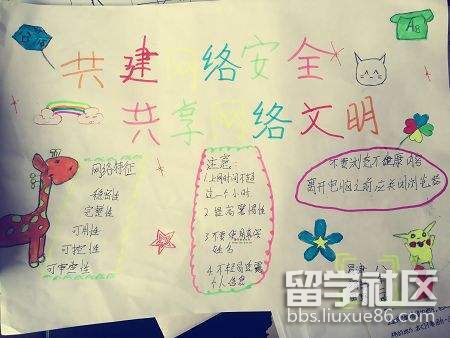 共建网络安全
共享网络文明
AB
网络特征
稳密性
完整性
可用性
可控性
可审查性
注意
1.上网时间不超
过一个小时
2.提高警惕性
3.不要使用真实
姓名
4.不轻易泄露
个人信息
不要浏览不健康内容
离开电脑之前应关闭浏览器
留学社区
bbs.liuxue86.com